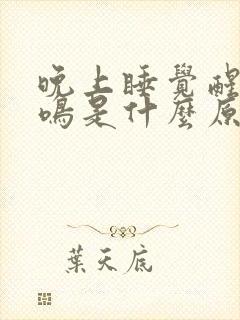 晚上睡覺醒
鳴是什麼原
葉天底